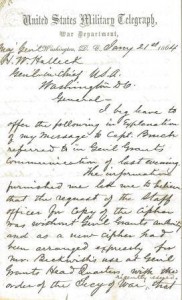 United States Military Telegraph,
War Department,
Washington, D. C. Jany 21st 1864
Maj Genl
H. W. Halleck
Genl-in-Chief U.S.A.
Washington D.C.
General
I beg leave to
offer the following in Explanation
of my Message to Capt. Bruch
referred to in Genl Grants
communication of last evening.
The information
furnished me led me to believe
that the request of the Staff
officer for Copy of the Cipher
was without Genl Grants authority
and as a new cipher had
been arranged expressly for
Mr. Beckwiths use at Genl
Grants Head Quarters with the
order of the Secy of War, that